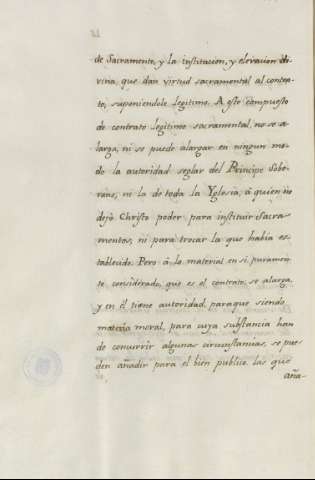 de Sacramento, y la institucion, y elevacion di-
vina, que dan virtud sacramental al contra-
to, suponiendole legitimo. A este compuesto
de contrato legitimo sacramental, no se a-
larga, ni se puede alargar en ningun mo-
do la autoridad seglar del Principe Sobe-
rano, ni la de toda la Yglesia, á quien no
dejò Christo poder para instituir Sacra-
mentos, ni para trocar lo que habia es-
tablecido. Pero á lo material en si puramen-
te considerado, que es el contrato, se alarga,
y en èl tiene autoridad, paraque siendo
materia moral, para cuya substancia han
de concurrir algunas circunstancias, se pue-
den añadir para el bien publico las que
aña-